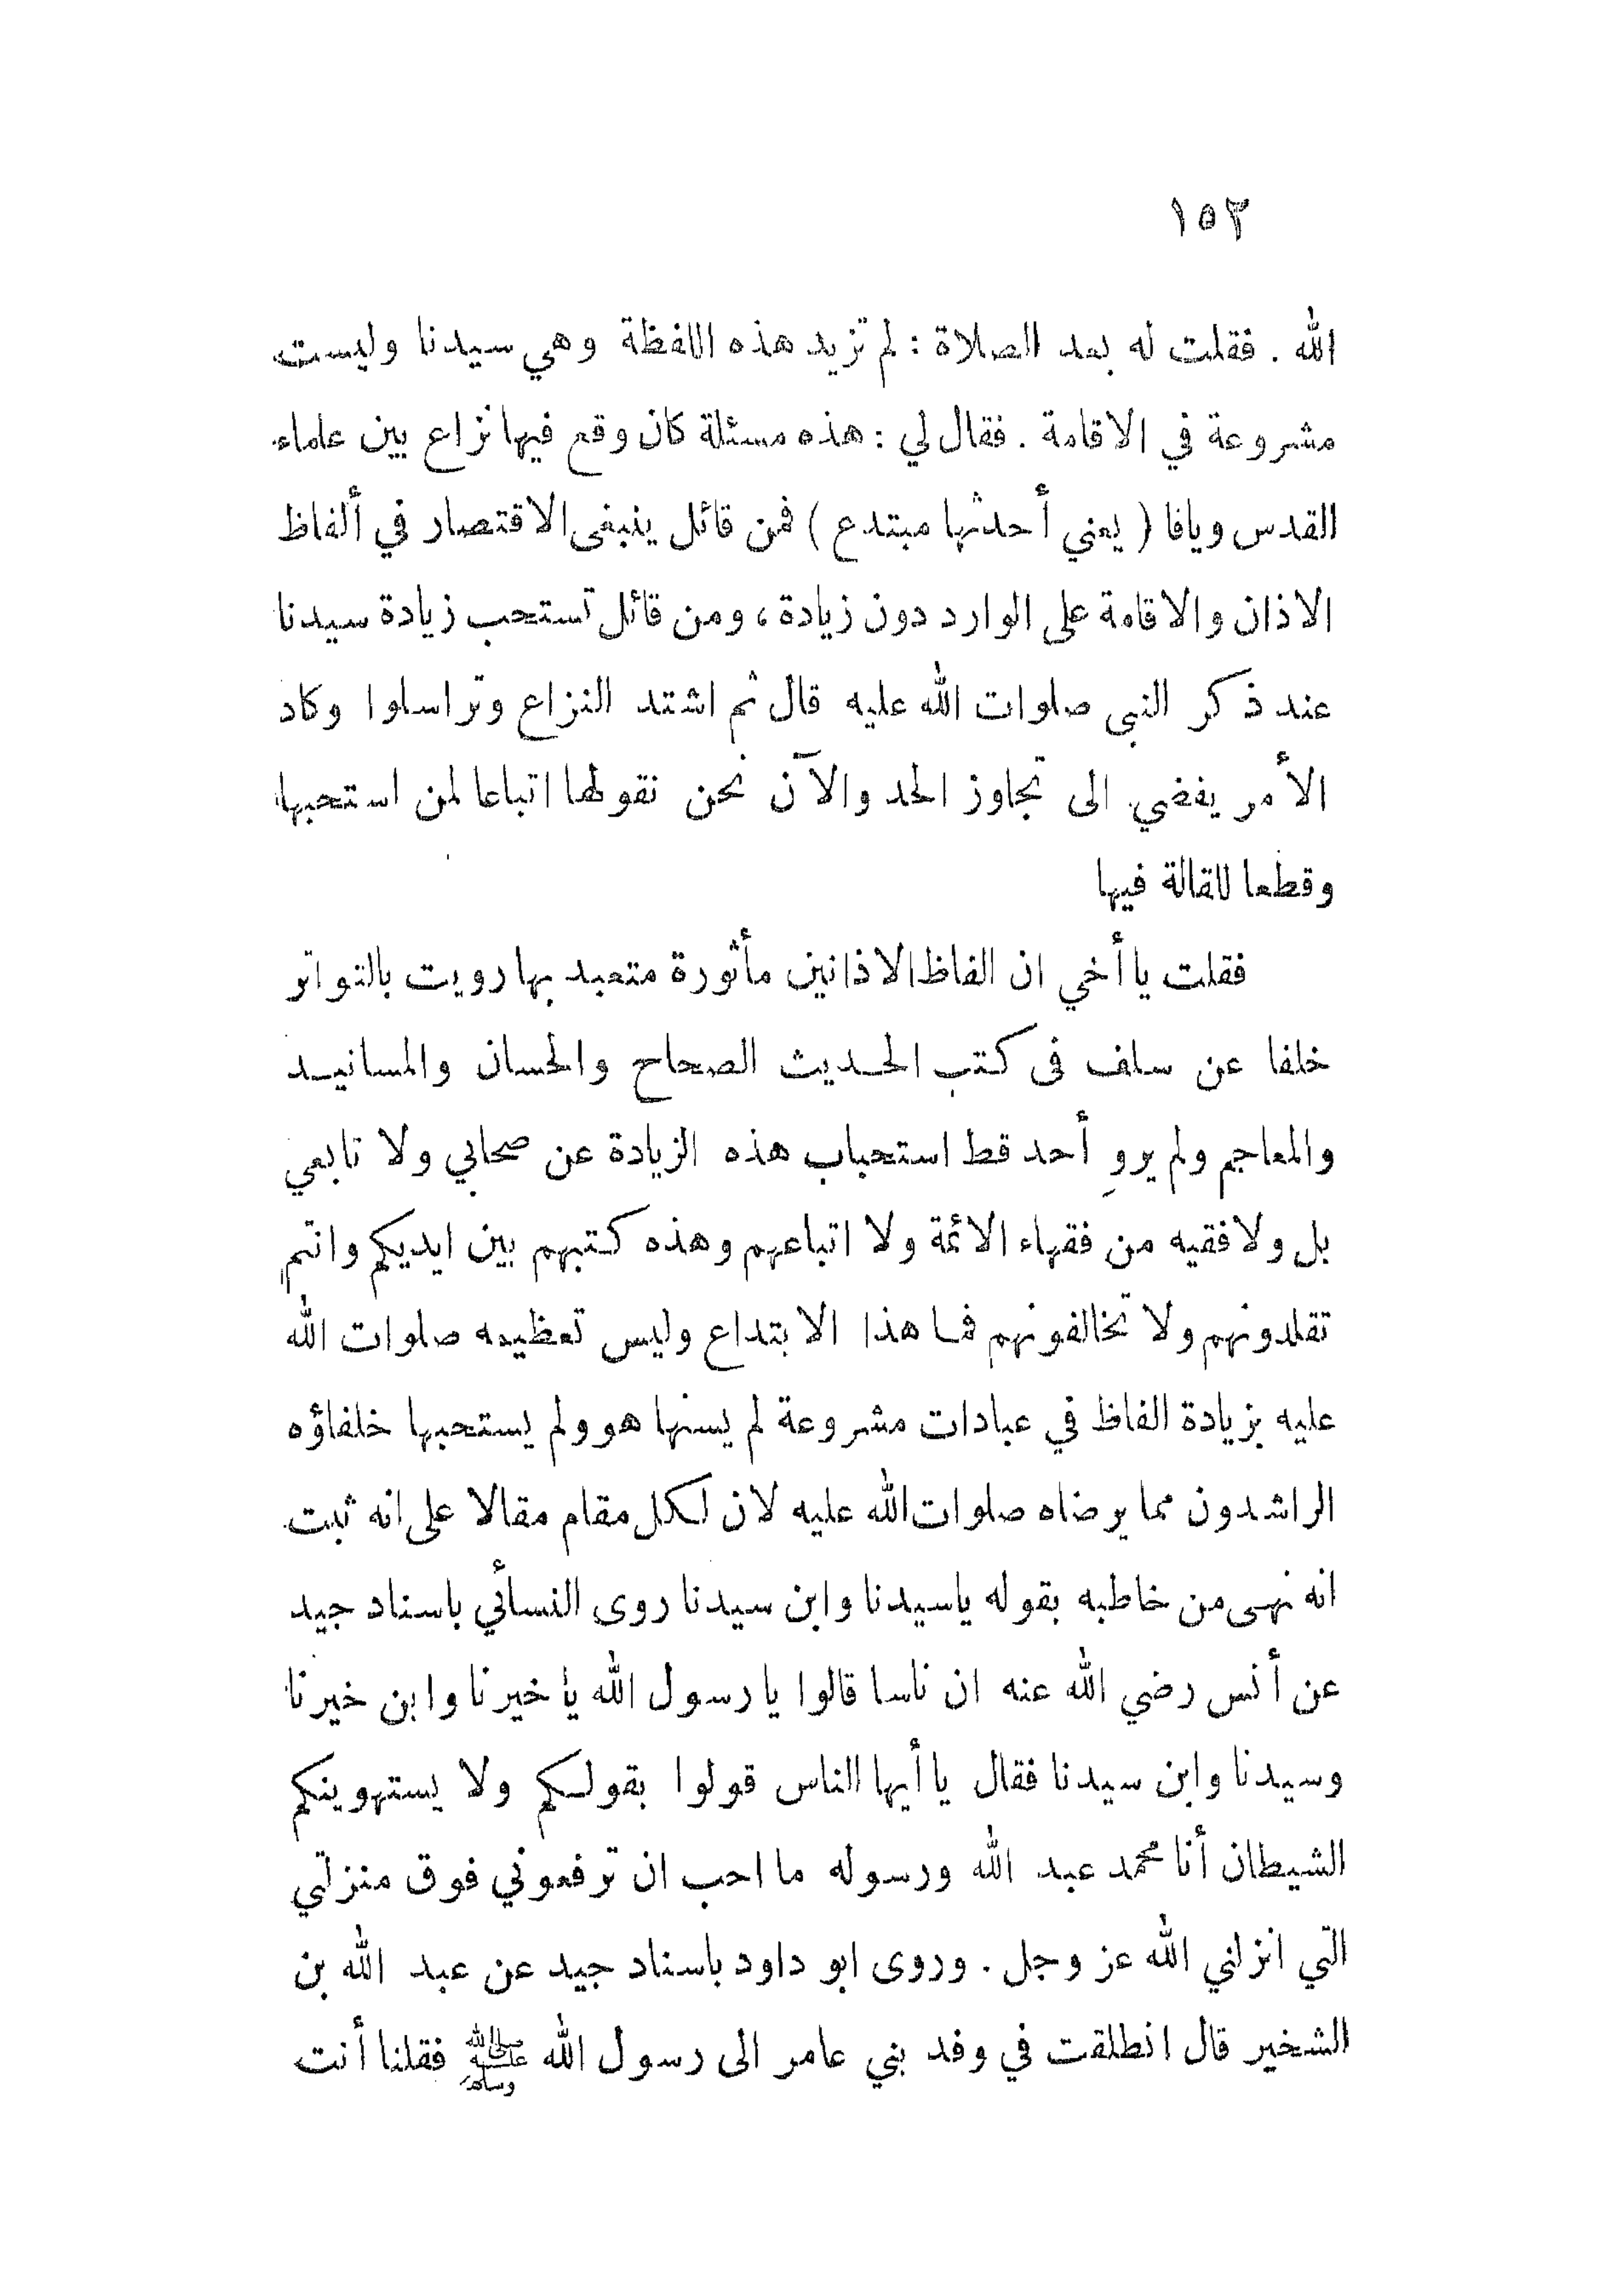 ١٥٣
الله . فقلت له بعد الصلاة : لم تزيد هذه اللفظة وهي سيدنا وليست
مشروعة في الاقامة . فقال لي : هذه مسئلة كان وقع فيها نزاع بين علماء
القدس ويافا ( يعني أحدثها مبتدع ) فمن قائل ينبغى الاقتصار في ألفاظ
الاذان والاقامة على الوارد دون زيادة ، ومن قائل تستحب زيادة سيدنا
عند ذكر النبي صلوات الله عليه قال ثم اشتد النزاع وتراسلوا وكاد
الأمر يفضي الى تجاوز الحد والآن نحن نقولها اتباعا لمن استحبها
وقطعا للقالة فيها
فقلت يا أخي ان الفاظ الاذانين مأثورة متعبد بها رويت بالتواتر
خلفا عن سلف فى كتب الحديث الصحاح والحسان والمسانيد
والمعاجم ولم يروِ أحد قط استحباب هذه الزيادة عن صحابي ولا تابعي
بل ولا فقيه من فقهاء الائمة ولا اتباعهم وهذه كتبهم بين ايديكم وانتم
تقلدونهم ولا تخالفونهم فما هذا الابتداع وليس تعظيمه صلوات الله
عليه بزيادة الفاظ في عبادات مشروعة لم يسنها هو ولم يستحبها خلفاؤه
الراشدون مما يرضاه صلوات الله عليه لان لكل مقام مقالا على انه ثبت
انه نهى من خاطبه بقوله ياسيدنا وابن سيدنا روى النسائي باسناد جيد
عن أنس رضي الله عنه ان ناسا قالوا يا رسول الله يا خيرنا وابن خيرنا
وسيدنا وابن سيدنا فقال يا أيها الناس قولوا بقولكم ولا يستهوينكم
الشيطان أنا محمد عبد الله ورسوله ما احب ان ترفعوني فوق منزلتي
التي انزلني الله عز وجل . وروى ابو داود باسناد جيد عن عبد الله بن
الشخير قال انطلقت في وفد بني عامر الى رسول الله ﷺ فقلنا أنت